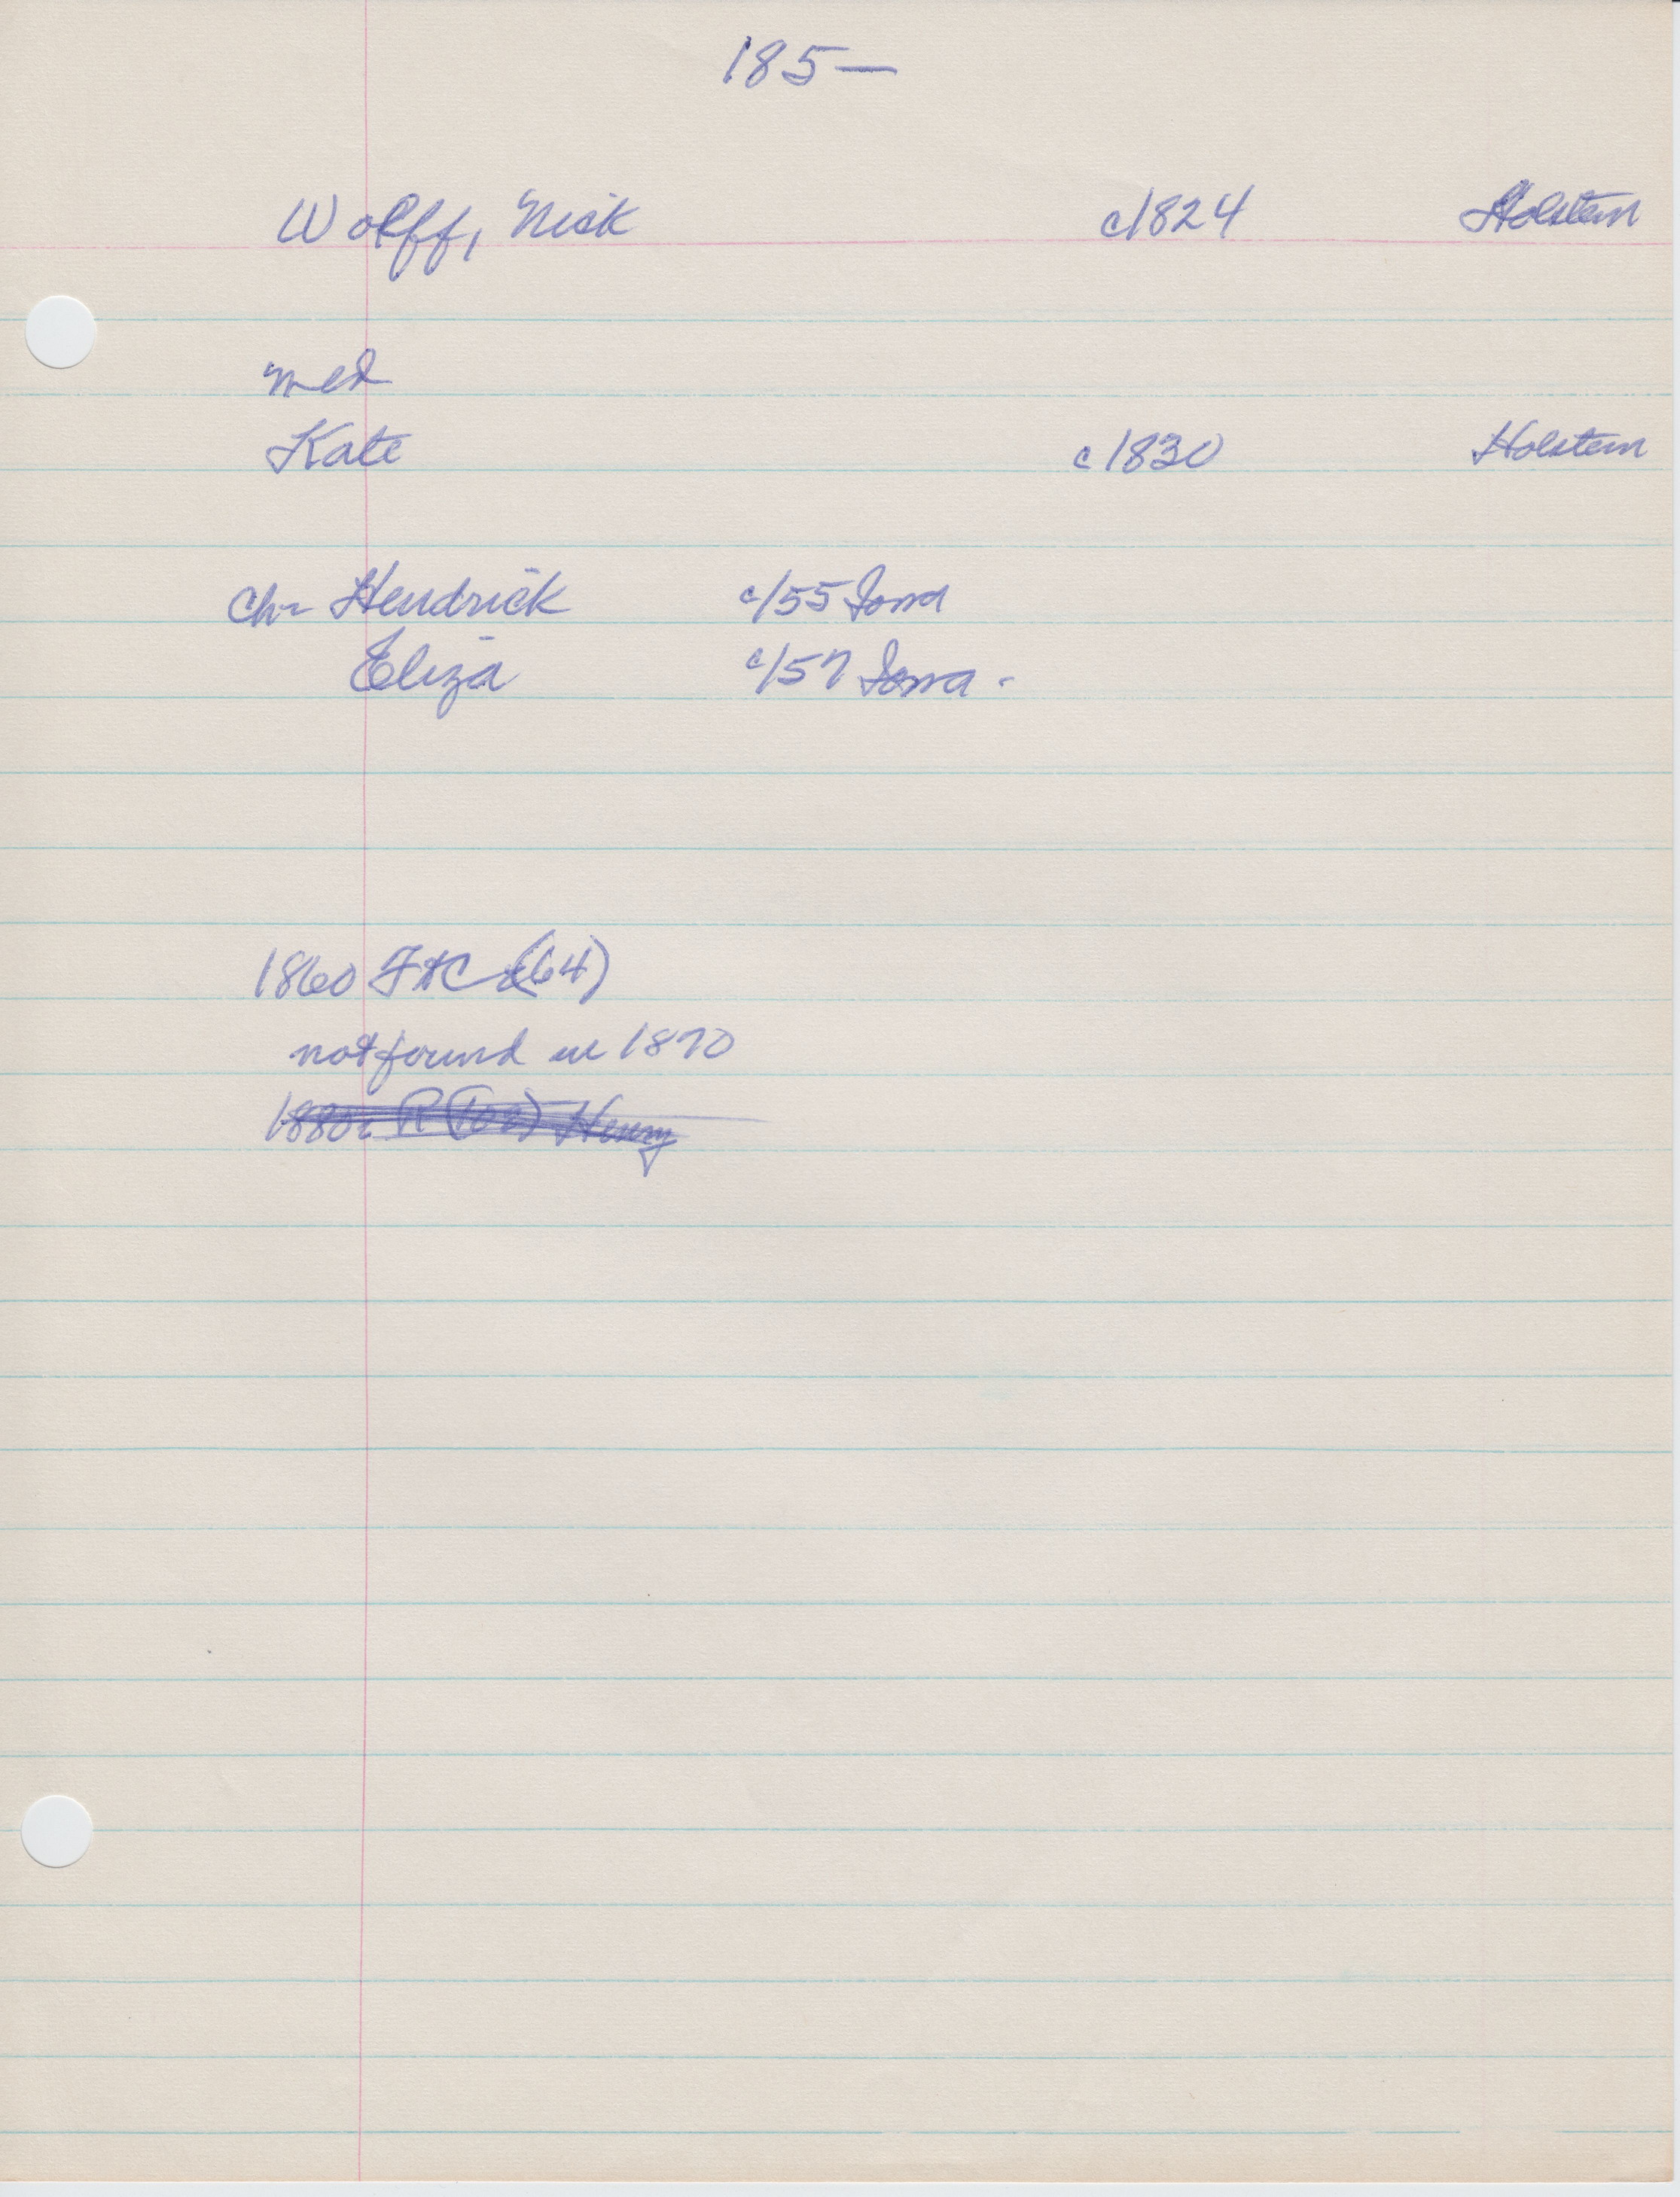 185—
Wolff, Nick c1824 Holstein
med
Kate c1830 Holstein
ch- Hendrick c/55 Iowa
Eliza c/57 Iowa -
1860 (64)
not found in 1870
1880 R Henry